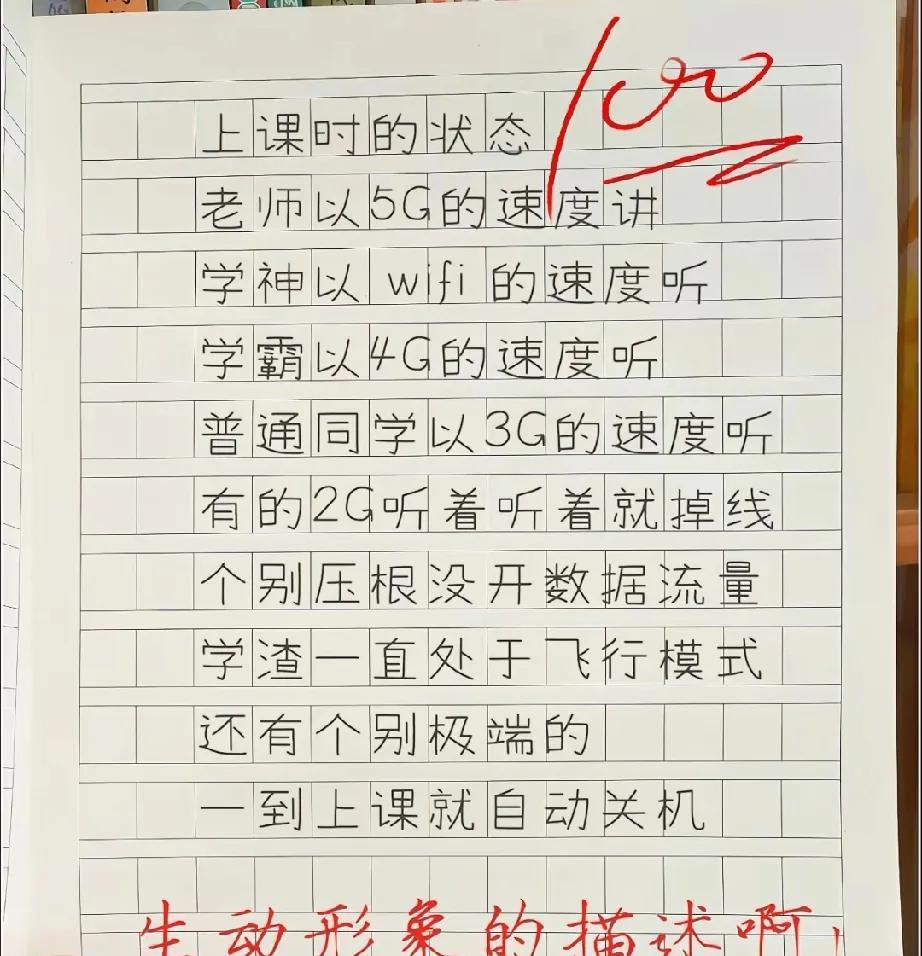 100
上课时的状态
老师以5G的速度讲
学神以 wifi 的速度听
学霸以4G的速度听
普通同学以3G的速度听
有的2G听着听着就掉线
个别压根没开数据流量
学渣一直处于飞行模式
还有个别极端的
一到上课就自动关机
生动形象的描述啊!